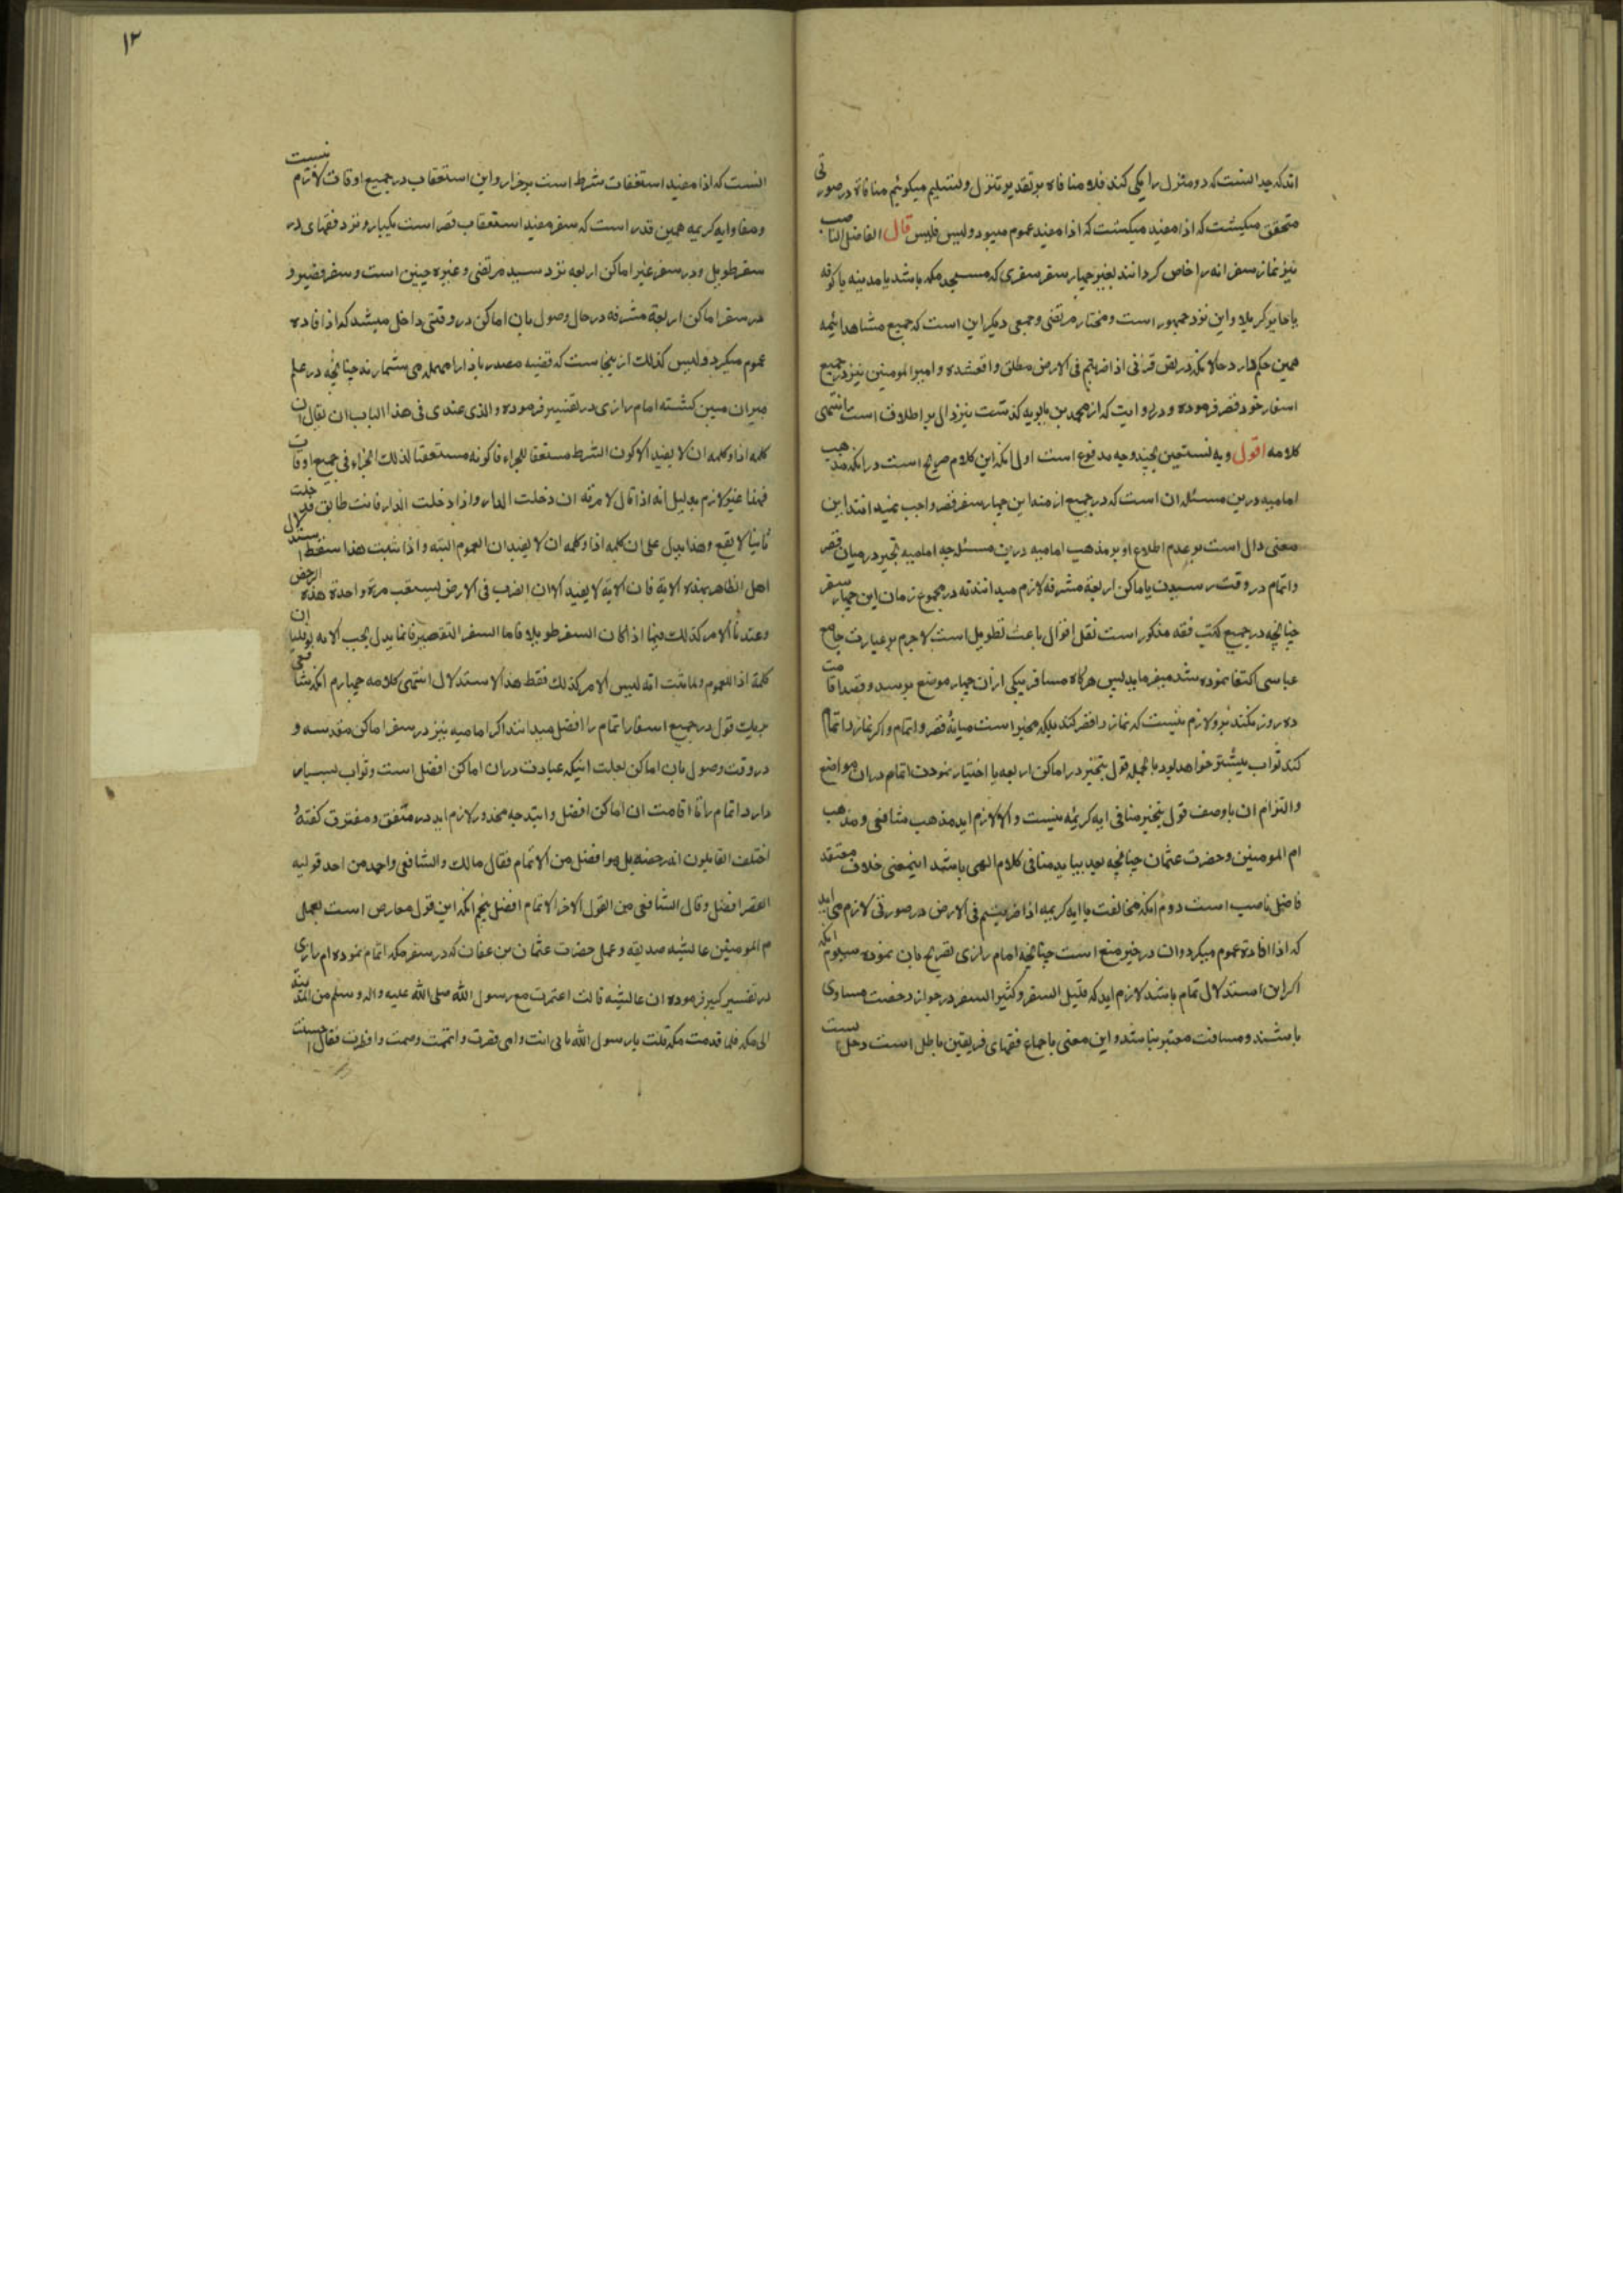 اند که جدا است که دو منزل را یکی کند فلا منافاه بر تقدیر تنزل و تسلیم میکوئیم منافاة در صورتی
متحقق میکشت که اذا مفید میکشت که اذا مفید عموم میبود و لیس فلیس قال الفاضل الناصب
نیز نماز سفرانه را خاص کردانند بغیر چهار سفر سفری که مسجد مکه باشد یا مدینه یا کوفه
یا حایر کربلا و این نزد جمهور است و مختار مرتضی و جمعی دیکر این است که جمیع مشاهد ائمه
همین حکم دارد حالانکه در نص قرآنی اذا ضربتم فی الارض مطلق واقعشده و امیر المومنین نیز در جمیع
اسفار خود قصر فرموده و در روایت که از محمد بن بابویه کذشت نیز دال بر اطلاق است انتهی
کلامه اقول و به نستعین بچند وجه مدفوع است اول انکه این کلام صریح است در انکه مذهب
امامیه درین مسئله ان است که در جمیع ازمنه این چهار سفر قصر واجب نمیدانند این
معنی دال است بر عدم اطلاع او بر مذهب امامیه درین مسئله چه امامیه تخیر در میان قصر
و اتمام در وقت رسیدن باماکن اربعة مشرفه لازم میدانند نه در مجموع زمان این چهار سفر
چنانچه در جمیع کتب فقه مذکور است نقل اقوال باعث تطویل است لاجرم بر عبارت جامع
عباسی اکتفا نموده شد میفرماید پس هرکاه مسافر بیکی ازان چهار موضع برسد و قصد اقامت
ده روز نکند برو لازم نیست که نماز را قصر کند بلکه مخیر است میانهٔ قصر و اتمام و اکر نماز را تمام
کند ثواب بیشتر خواهد بود بالجمله قول بتخیر در اماکن اربعه یا اختیار نمودن اتمام دران مواضع
و التزام ان با وصف قول بتخیر منافی ایه کریمه نیست و الا لازم اید مذهب شافعی و مذهب
ام المومنین و حضرت عثمان چنانچه بعد بیاید منافی کلام الهی باشد اینمعنی خلاف معتقد
فاضل ناصب است دوم انکه مخالفت با ایه کریمه اذا ضربتم فی الارض در صورتی لازم می اید
که اذا افادهٔ عموم میکرد و ان در خیر منع است چنانچه امام رازی تصریح بان نموده سیوم انکه
اکر این استدلال تمام باشد لازم اید که قلیل السفر و کثیر السفر در جواز رخصت مساوی
باشند و مسافت معتبر نباشد و این معنی باجماع فقهای فریقین باطل است
انست که اذا مفید استعقاب شرط است بر جزا و این استعقاب در جمیع اوقات لازم نیست
و مفاد ایه کریمه همین قدر است که سفر مفید استعقاب قصر است یکبار و نزد فقهای در
سفر طویل و در سفر غیر اماکن اربعه نزد سید مرتضی و غیره چنین است و سفر قصیر و
در سفر اماکن اربعة مشرفه در حال وصول بان اماکن در وقتی داخل میشد که اذا افاده
عموم میکرد و لیس کذلک ازینجاست که قضیه مصدر باذا را مهمله می شمارند چنانچه در علم
میزان مبین کشته امام رازی در تفسیر فرموده و الذی عندی فی هذا الباب ان یقال ان
کلمه اذا و کلمه ان لا یفید الا کون الشرط مستعقبا للجزاء فاما کونه مستعقبا لذلک الجزاء فی جمیع اوقات
فهذا غیر لازم بدلیل انه اذا قال لامرته ان دخلت الدار و اذا دخلت الدار فانت طالق فدخلت
ثانیا لا یقع و هذا یدل علی ان کلمه اذا و کلمه ان لا یفیدان العموم البته و اذا ثبت هذا سقط استدلال
اهل الظاهر بهذه الایة فان الایة لا یفید الا ان الضرب فی الارض یستعقب مرة واحدة هذه الرخص
و عندنا الامر کذلک فیما اذا کان السفر طویلا فاما السفر القصیر فانما یدل بحسب الایه لو قلنا ان
کلمة اذا للعموم و لما ثبت انه لیس الامر کذلک فقط هذا الاستدلال انتهی کلامه چهارم انکه شافعی
بریک قول در جمیع اسفار اتمام را افضل میداند اکر امامیه نیز در سفر اماکن مقدسه و
در وقت وصول بان اماکن بعلت اینکه عبادت دران اماکن افضل است و ثواب بسیار
دارد اتمام را تا اقامت ان اماکن افضل دانند چه محذور لازم اید در متفق و مفترق کفته
اختلف القایلون انه رخصه بل هو افضل من الاتمام فقال مالک و الشافعی و احمد من احد قولیه
القصر افضل و قال الشافعی من القول الاخر الاتمام افضل پنجم انکه این قول معارض است بعمل
م المومنین عایشه صدیقه و عمل حضرت عثمان بن عفان که در سفر مکه اتمام نموده امام رازی
در تفسیر کبیر فرموده ان عایشه قالت اعتمرت مع رسول الله صلی الله علیه و اله و سلم من المدینة
الی مکه فلما قدمت مکه قلت یا رسول الله بابی انت و امی قصرت و اتممت و صمت و افطرت فقال احسنت
١٢